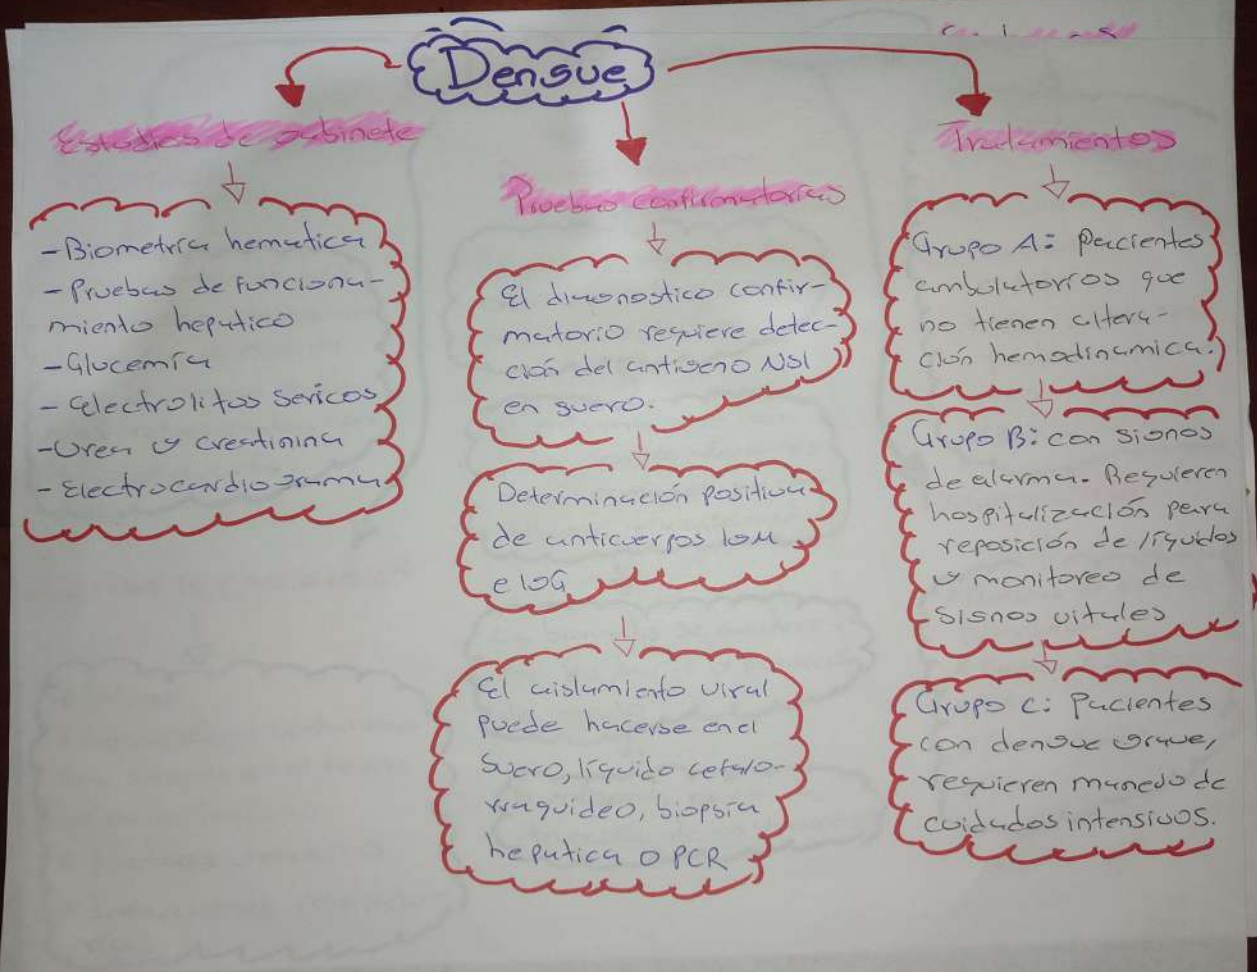 Dengue
Estudios de gabinete
-Biometría hematica
-Pruebas de funciona-
miento hepatico
-Glucemía
-Electrolitos sericos
-Urea y creatinina
-Electrocardiograma
Pruebas confirmatorias
El diagnostico confir-
matorio requiere detec-
ción del antigeno NS1
en suero.
Determinación positiva
de anticuerpos IgM
e IgG
El aislamiento viral
puede hacerse en el
suero, líquido cefalo-
rraquideo, biopsia
hepatica o PCR
Tratamientos
Grupo A: Pacientes
ambulatorios que
no tienen altera-
ción hemodinamica.
Grupo B: con signos
de alarma. Requieren
hospitalización para
reposición de líquidos
y monitoreo de
signos vitales
Grupo C: Pacientes
con dengue grave,
requieren manejo de
cuidados intensivos.